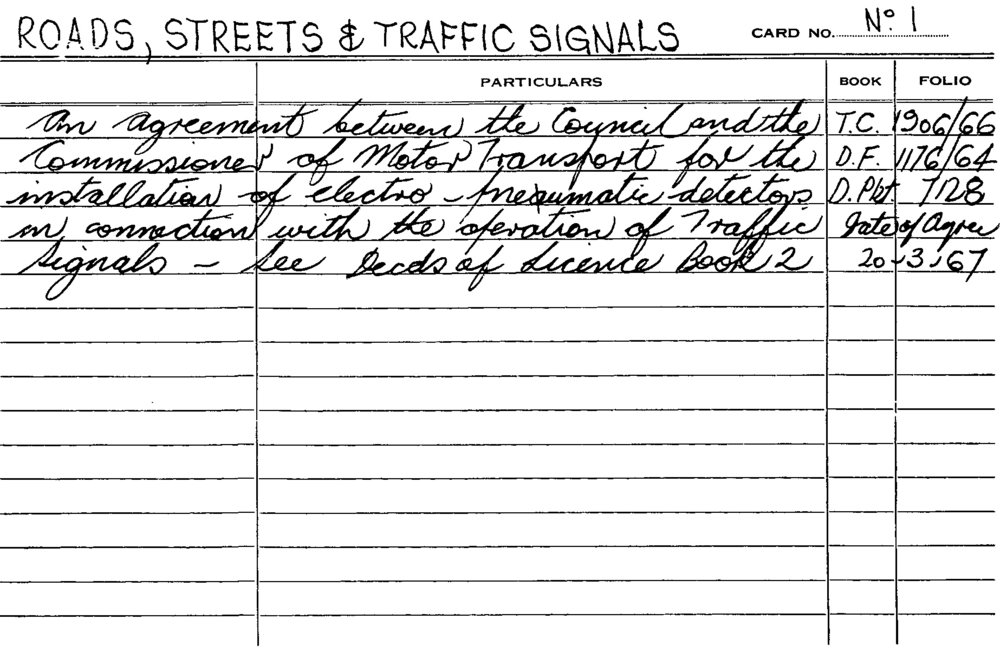 ROADS, STREETS & TRAFFIC SIGNALS CARD NO. Nº 1
PARTICULARS BOOK FOLIO
An agreement between the Council and the T.C. 1906/66
Commissioner of Motor Transport for the D.F. 1176/64
installation of electro-pneumatic detectors D. Pkt. 7128
in connection with the operation of Traffic Date of Agree
Signals - See Deeds of Licence Book 2 20-3-67